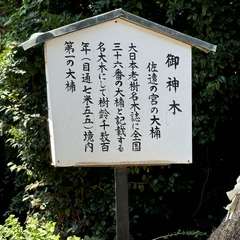 御神木
佐邊の宮の大楠
大日本老樹名木誌に全国
三十六番の大楠と記載する
名大木にして樹齢千数百
年（目通七米五五）境内
第一の大楠